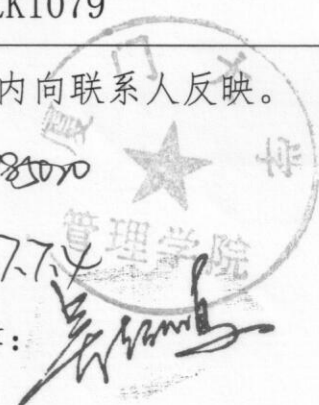 LK1079
内向联系人反映。
85010
7.7.4
:
厦门大学
管理学院